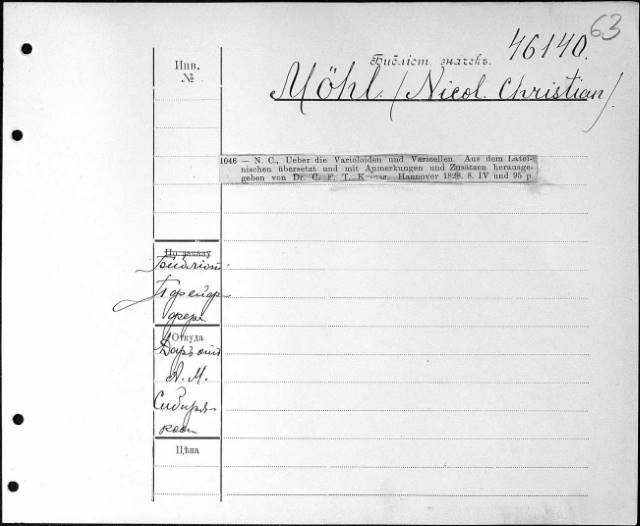 63
46140.
Инв.
№
Библіот. значекъ.
Möhl. (Nicol. Christian).
1046 — N. C., Ueber die Varioloiden und Varicellen. Aus dem Latei-
nischen übersetzt und mit Anmerkungen und Zusätzen herausge-
geben von Dr. C. F. T. Hannover 1828. 8. IV und 95 p.
По заказу
Библіот.
Пфейф-
фера
Откуда
Даръ отъ
М.
Сибиря-
кова
Цѣна